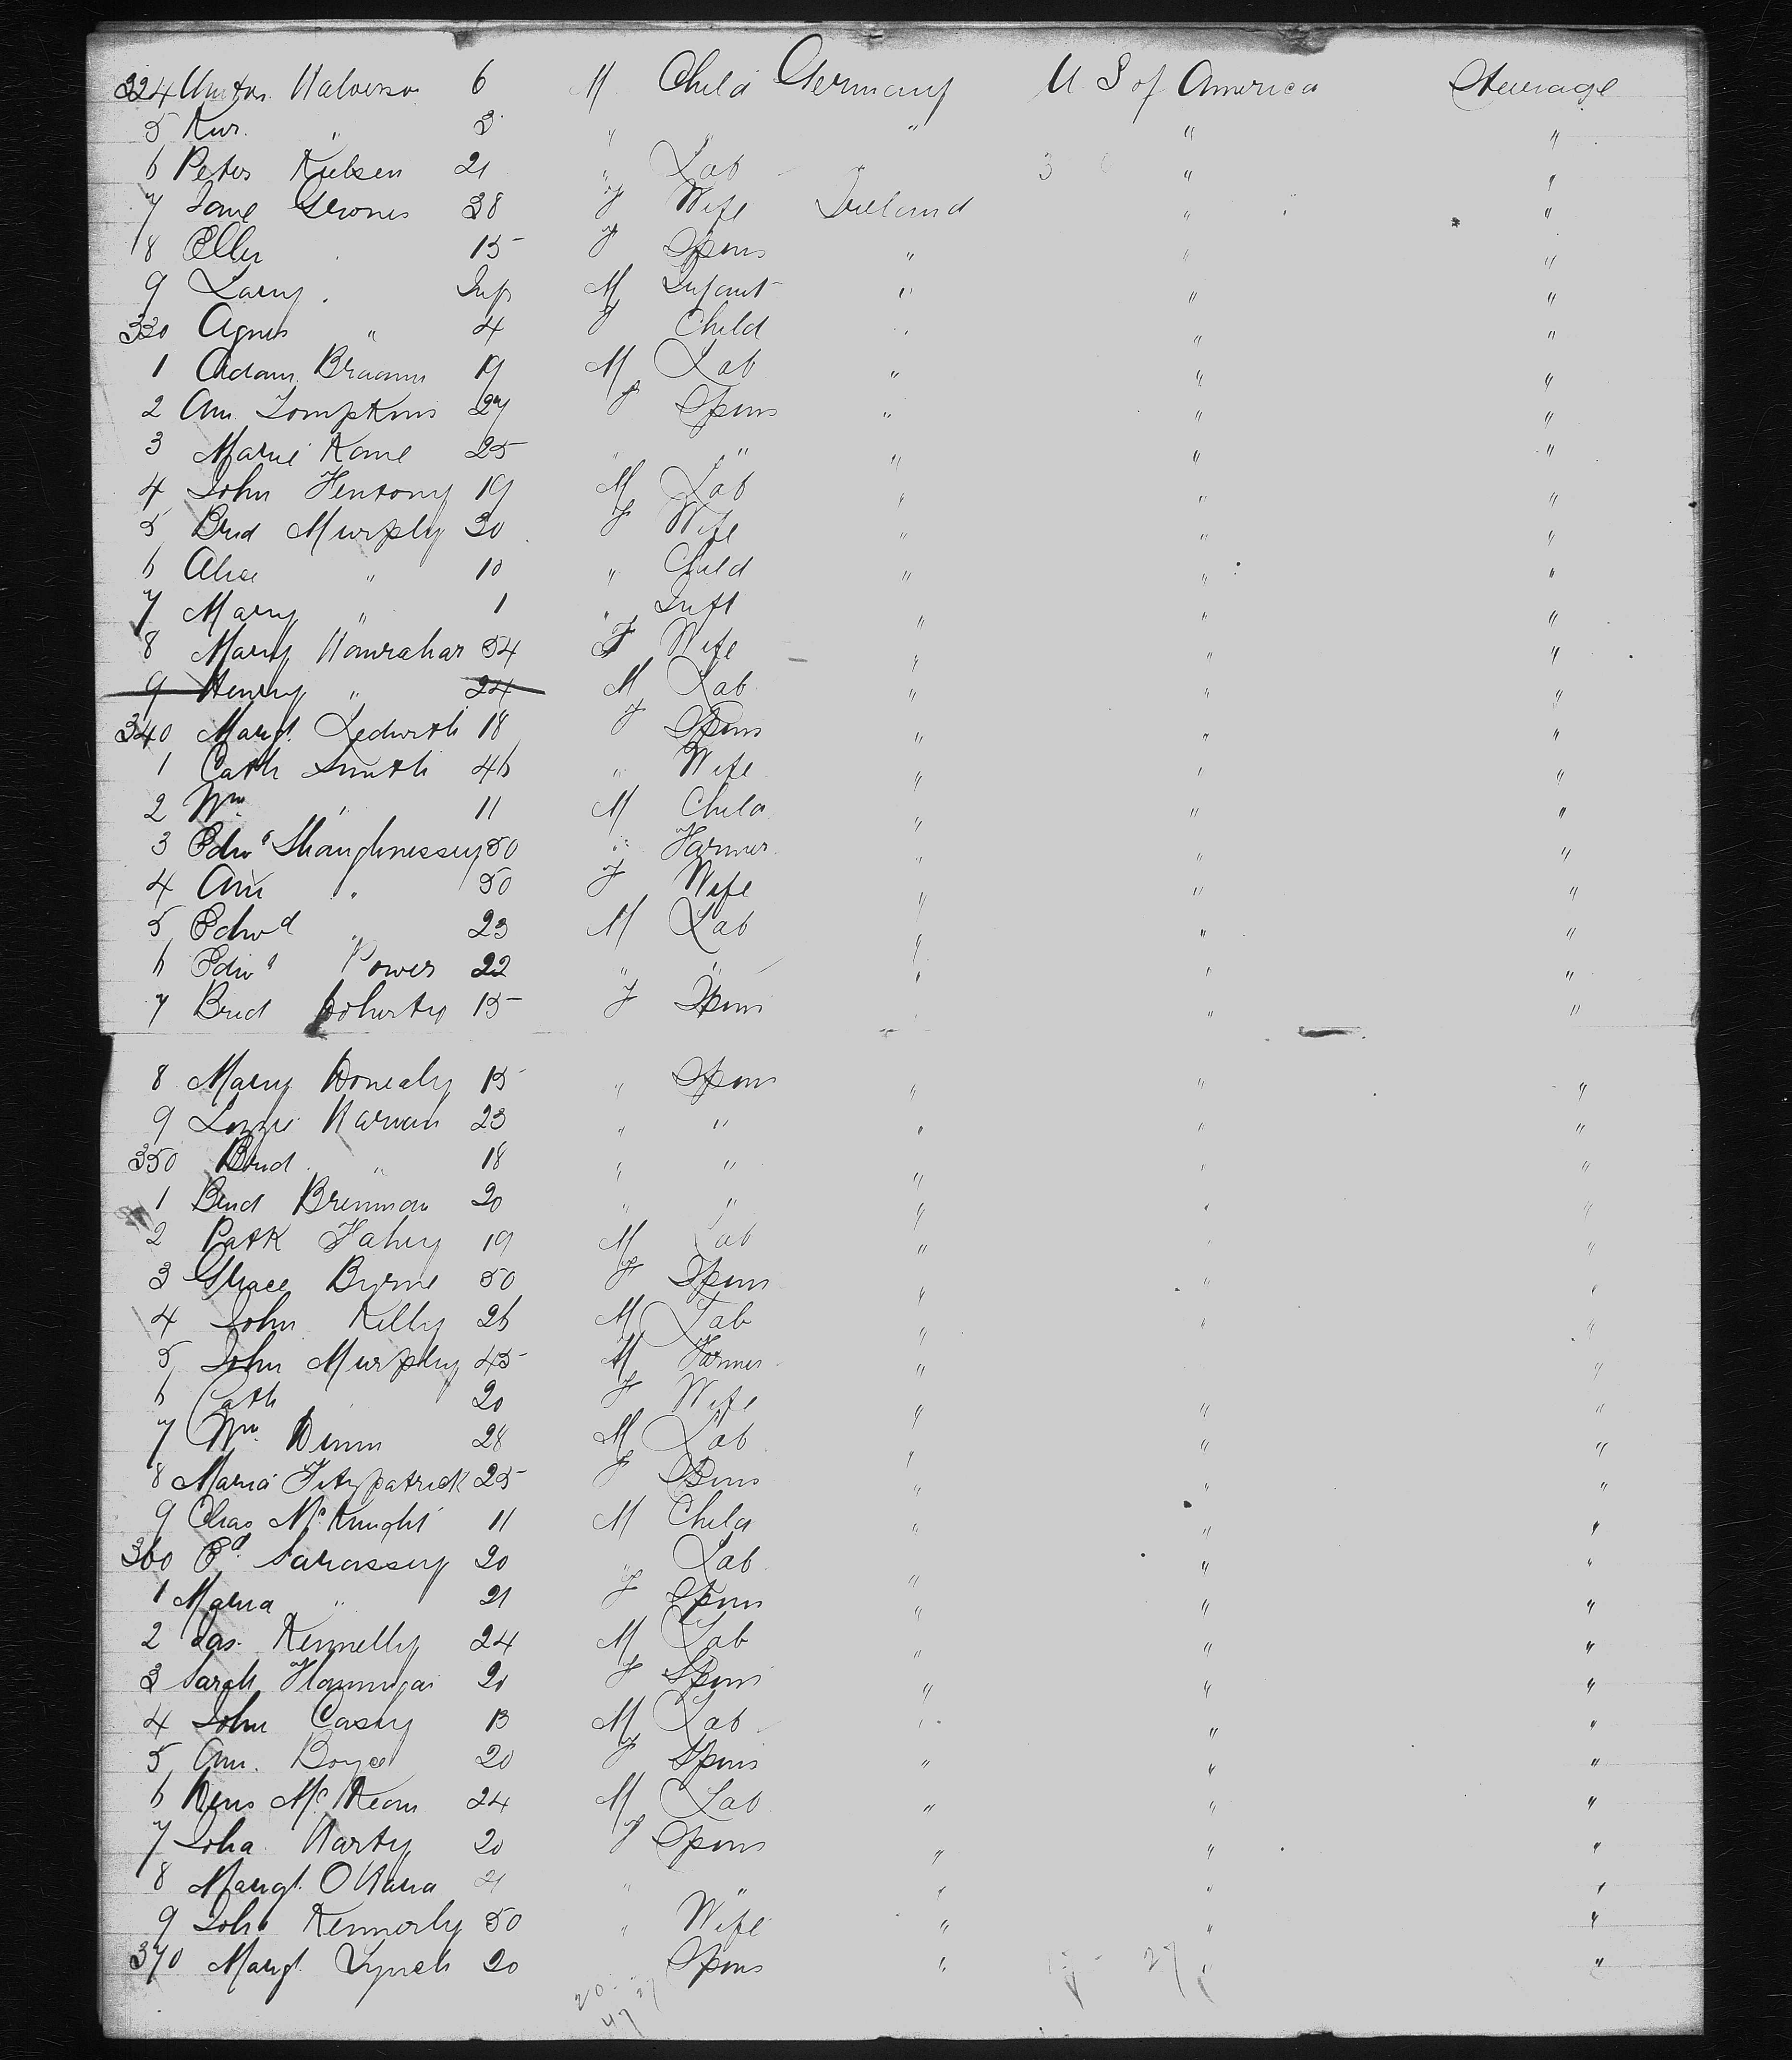 324 6 M Child Germany U S of America Steerage
5 " 3 " " " " "
6 Peter 21 " Lab 3 " "
7 Jane 38 F Wife Ireland " "
8 Ellen 15 F Spins " " "
9 Inf M Infant " " "
330 Agnes " 4 F Child " " "
1 Adam 19 M Lab " " "
2 Ann Tompkins 27 F Spins " " "
3 Marie Kane 25 " " " " "
4 John 19 M Lab " " "
5 Brid Murphy 30 F Wife " " "
6 Alice " 10 " Child " " "
7 Mary " 1 " Inft " " "
8 Mary 54 F Wife " " "
9 Henry " 24 M Lab " " "
340 Margt Ledwith 18 F Spins " " "
1 Cath Smith 46 " Wife " " "
2 Wm " 11 M Child " " "
3 Edwd Shaughnessy 50 " Farmer " " "
4 Ann " 50 F Wife " " "
5 Edwd " 23 M Lab " " "
6 Edwd Power 22 " " " " "
7 Brid Doherty 15 F Spins " " "
8 Mary 15 " Spins " " "
9 Lizzie 23 " " " " "
350 Brid " 18 " " " " "
1 Brid Brennan 20 " " " " "
2 Patk Fahey 19 M Lab " " "
3 Grace Byrne 50 F Spins " " "
4 John Kelly 26 M Lab " " "
5 John Murphy 45 M Farmer " " "
6 Cath " 20 F Wife " " "
7 Wm Dunn 28 M Lab " " "
8 Maria Fitzpatrick 25 F Spins " " "
9 Chas McKnight 11 M Child " " "
360 20 " Lab " " "
1 Maria " 21 F Spins " " "
2 Jas. Kennelly 24 M Lab " " "
3 Sarah Flannigan 20 F Spins " " "
4 John Casey 13 M Lab " " "
5 Ann. Boyce 20 F Spins " " "
6 McKeon 24 M Lab " " "
7 Harty 20 F Spins " " "
8 Margt. O'Hara 21 " " " " "
9 50 " Wife " " "
370 Margt Lynch 20 Spins " 27 " "
20 27
47